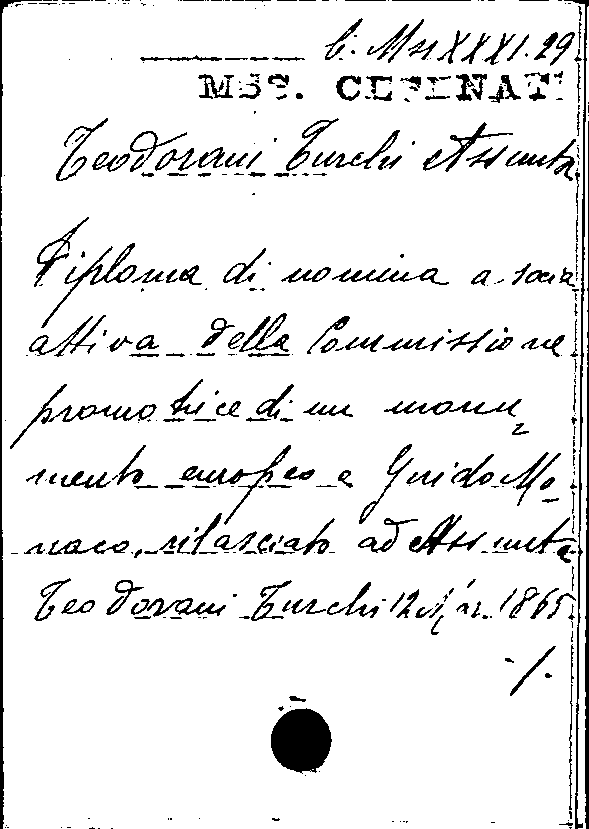 C. Mss XXXI. 29
MSS. CESENATI
Teodorani Turchi Assunta
Diploma di nomina a socia
attiva della Commissione
promotrice di un monu=
mento europeo a Guido Mo=
naco, rilasciato ad Assunta
Teodorani Turchi 12 Mar. 1865
./.